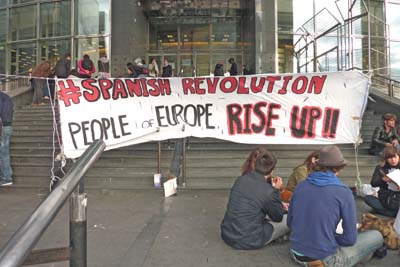 #SPANISH REVOLUTION
PEOPLE OF EUROPE RISE UP!!